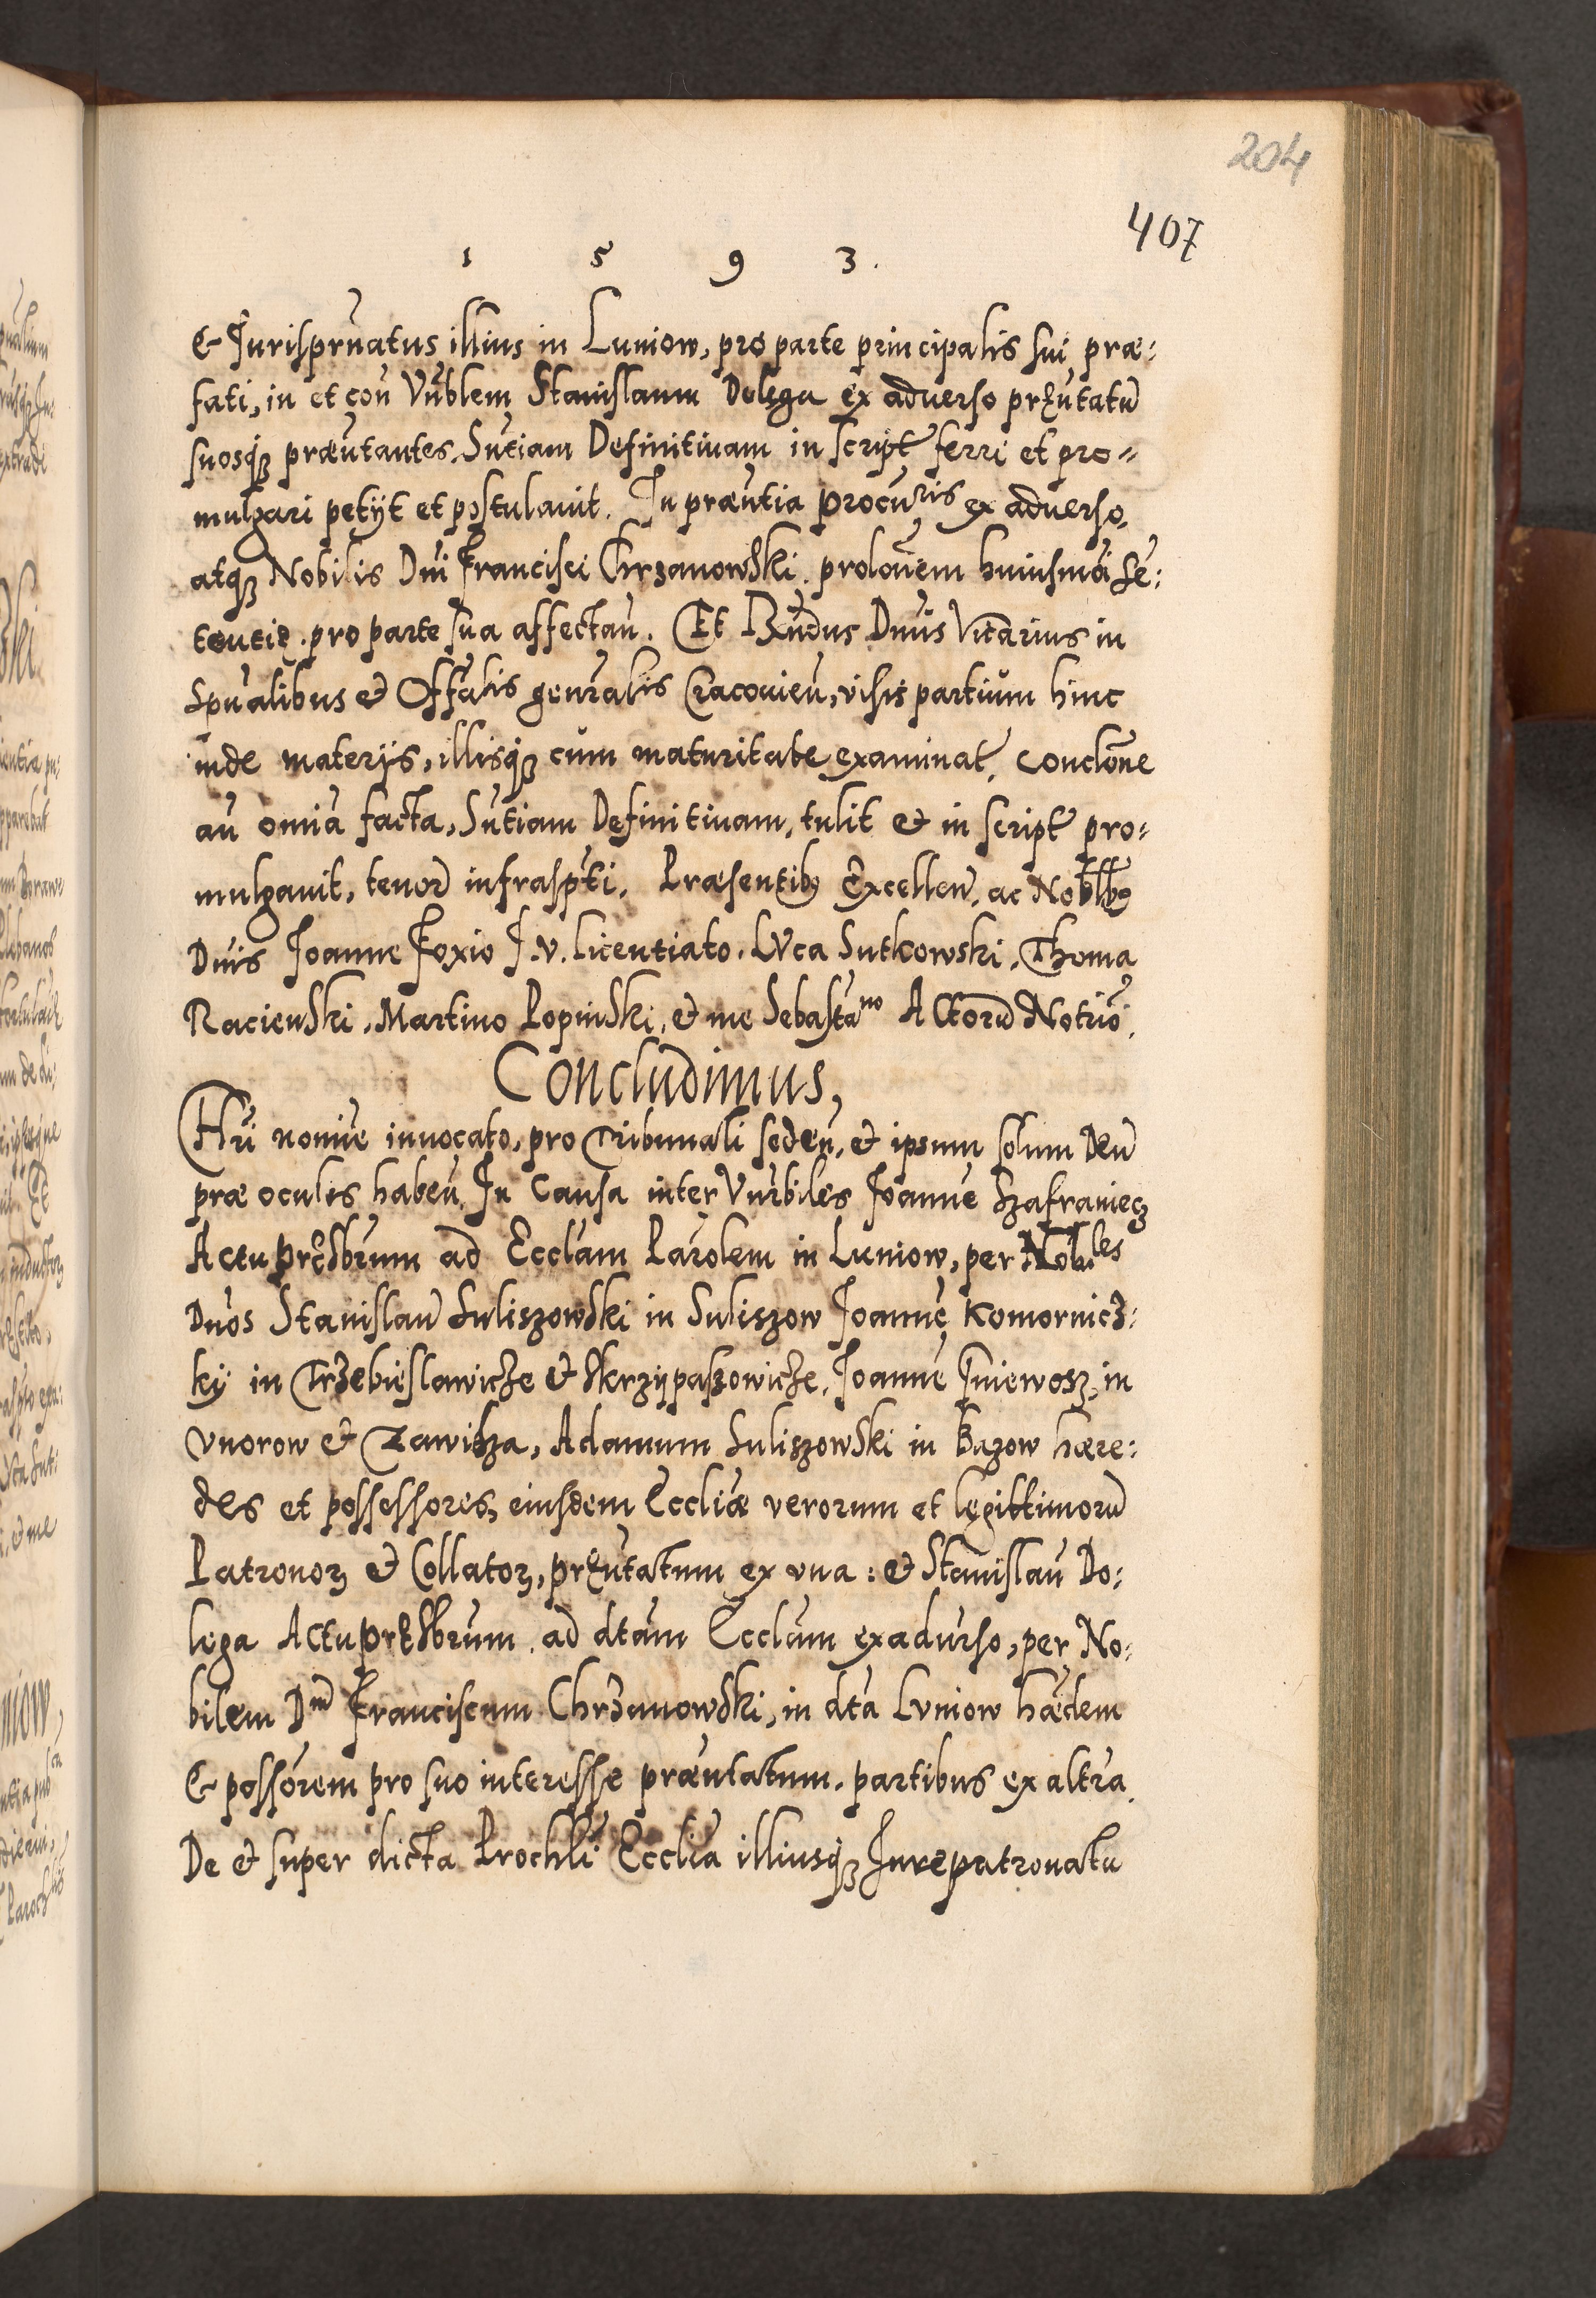 204
407
1 5 9 3.
& Jurisprñatus illius in Luniow, pro parte principalis sui præ:
fati, in et con̄ Vn̄blem Stanislaum Dolęga ex aduerso pręn̄tatū
suosq̨ præn̄tantes. Sn̄tiam Definitiuam in script̄ ferri et pro=
mulgari petijt et postulauit. In præn̄tia procurīs ex aduerso,
atq̨ Nobilis Dn̄i Francisci Chrzanowski. prolōnem huiusmōi Sē:
tentię. pro parte sua affectan̄. Et Rn̄dus Dn̄us Vicarius in
Spūalibus & Offālis gen̄ralis Cracouien̄, visis partium hinc
inde materijs, illisq̨ cum maturitate examinat̄, conclōne
an̄ omīa facta, Sn̄tiam Definitiuam, tulit & in script̄ pro=
mulgauit, tenor̄ infrasp̄ti. Præsentibꝯ Excellen̄. ac Nobl̄bꝯ
Dn̄is Joanne Foxio J.V. licentiato. Luca Sutkowski. Thoma
Raciewski. Martino Popinski, & me Sebastāno Actorū Notrīo.
Concludimus,
Chrī nomīe inuocato, pro Tribunali seden̄, & ipsum solum Deū
præ oculis haben̄. In Causa inter Vn̄rbiles Joannē Szafraniecz
Actu pręsbrūm ad Ecclām Parōlem in Luniow, per Nobiles
Dn̄os Stanislaū Suliszowski in Suliszow Joannē Komornicz:
ky in Trzebieslawicze & Skrzypaszowicze, Joannē Gniewosz, in
Vnorow & Zawisza, Adamum Suliszowski in Bazow hære:
des et possessores, eiusdem Ecclīæ verorum et legittimorū
Patronoꝝ & Collatoꝝ, pręn̄tatum ex vna: & Stanislaū Do:
lega Actu pręsbrūm. ad dtām Ecclām exadūrso, per No:
bilem Dnū Franciscum Chrzanowski, in dtā Luniow hædem
& possōrem pro suo interesse præn̄tatum. partibus ex altrā.
De & super dicta Prochlī Ecclīa illiusq̨ Jurepatronatu